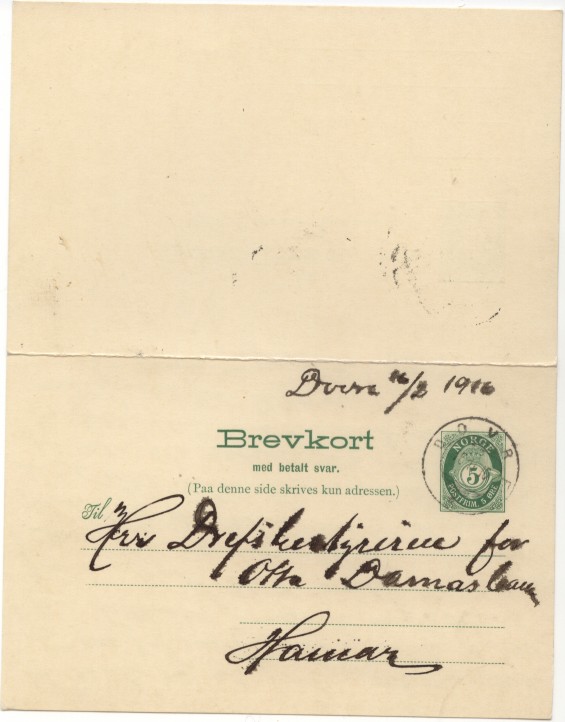 Dovre 16/2 1916
Brevkort
med betalt svar.
(Paa denne side skrives kun adressen.)
DOVRE
NORGE
5
POSTFRIM. 5 ØRE
Til
Herr Driftsbestyreren for
Otta Damasban
Hamar